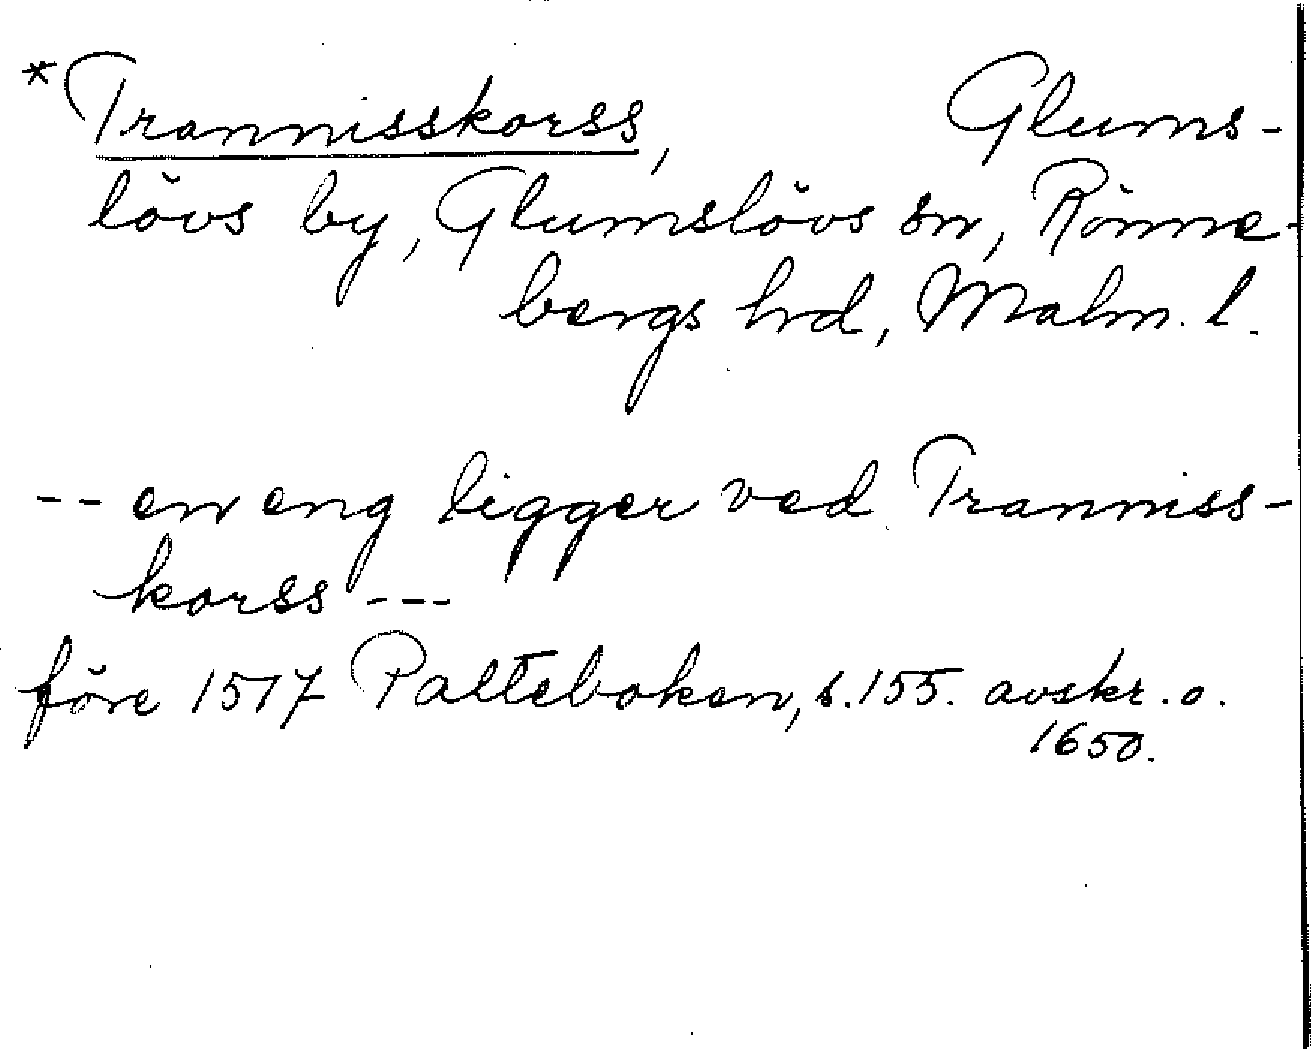 *Trannisskorss, Glums-
lövs by, Glumslövs sn, Rönne-
bergs hd, Malm. l.
-- en eng ligger ved Tranniss-
korss ---
före 1517 Palteboken, s. 155. avskr. o.
1650.